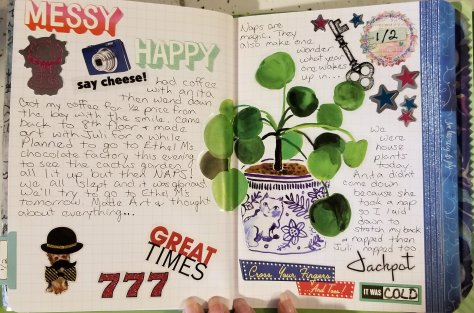 MESSY
HAPPY
say cheese!
had coffee
with anita
then went down
Got my coffee for ½ price from
the boy with the smile. Came
back to 8th floor & made
art with Juli for a while.
Planned to go to Ethel Ms
chocolate factory this evening
to see the cactus garden
all lit up but then NAPS!
We all slept and it was glorious!
We'll try to go to Ethel Ms
tomorrow. Made Art & thought
about everything...
GREAT
TIMES
777
1/2
Naps are
magic. They
also make one
wonder
what year
one wakes
up in...
1/2
We
were
house
plants
today.
Anita didn't
come down
because she
took a nap
so I laid
down to
stretch my back
& napped then
Juli napped too
Jackpot
Cross Your Fingers
And Toes!
IT WAS COLD